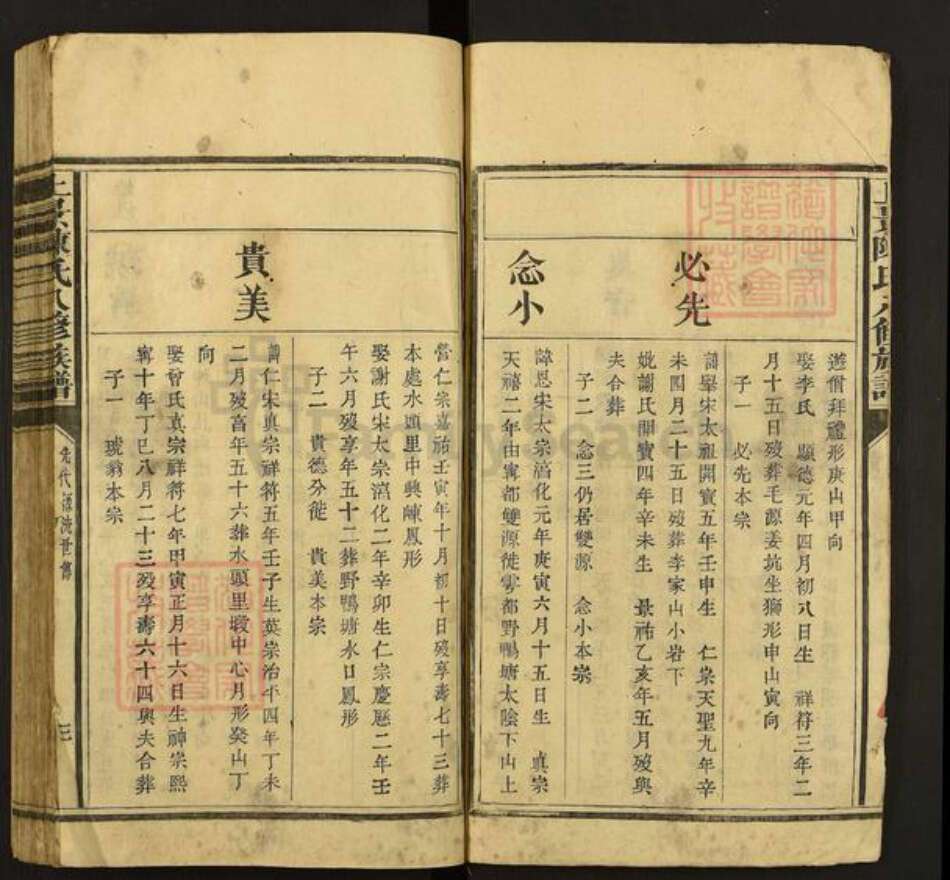 遊僧拜禮形庚山甲向
娶李氏 顯德元年四月初八日生 祥符三年二
月十五日殁葬毛源姜坑坐獅形申山寅向
子一 必先本宗
必先
諱舉宋太祖開寳五年壬申生 仁宗天聖九年辛
未四月二十五日殁葬李家山小岩下
妣謝氏開寳四年辛未生 景祐乙亥年五月殁與
夫合葬
子二 念三仍居雙源 念小本宗
念小
諱恩宋太宗淳化元年庚寅六月十五日生 真宗
天禧二年由寗都雙源徙雩都野鴨塘太陰下山上
營仁宗嘉祐壬寅年十月初十日殁享壽七十三葬
本處水頭里中興陳鳳形
娶謝氏宋太宗淳化二年辛卯生仁宗慶厯二年壬
午六月殁享年五十二葬野鴨塘水口鳳形
子二 貴德分徙 貴美本宗
貴美
諱仁宋真宗祥符五年壬子生英宗治平四年丁未
二月殁當年五十六葬水頭里墩中心月形癸山丁
向
娶曾氏真宗祥符七年甲寅正月十六日生神宗熙
寗十年丁巳八月二十三殁享壽六十四與夫合葬
子一 琥翁本宗
陳氏八修族譜
先代源流世傳